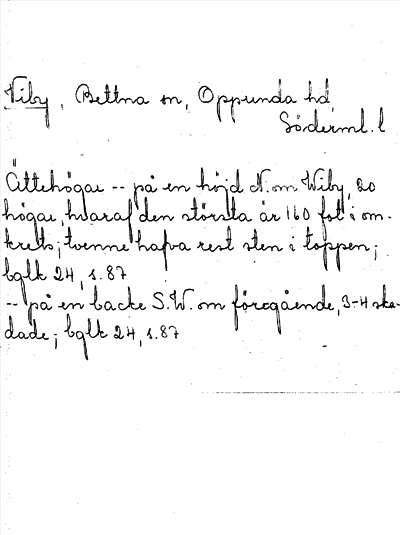 Viby, Bettna sn, Oppunda hd,
Söderml. l
Ättehögar -- på en höjd N. om Wiby, 20
högar, hvaraf den största är 160 fot i om-
krets; tvenne hafva rest sten i toppen;
bglk 24, s. 87
-- på en backe S.W. om föregående, 3-4 ska-
dade; bglk 24, s. 87